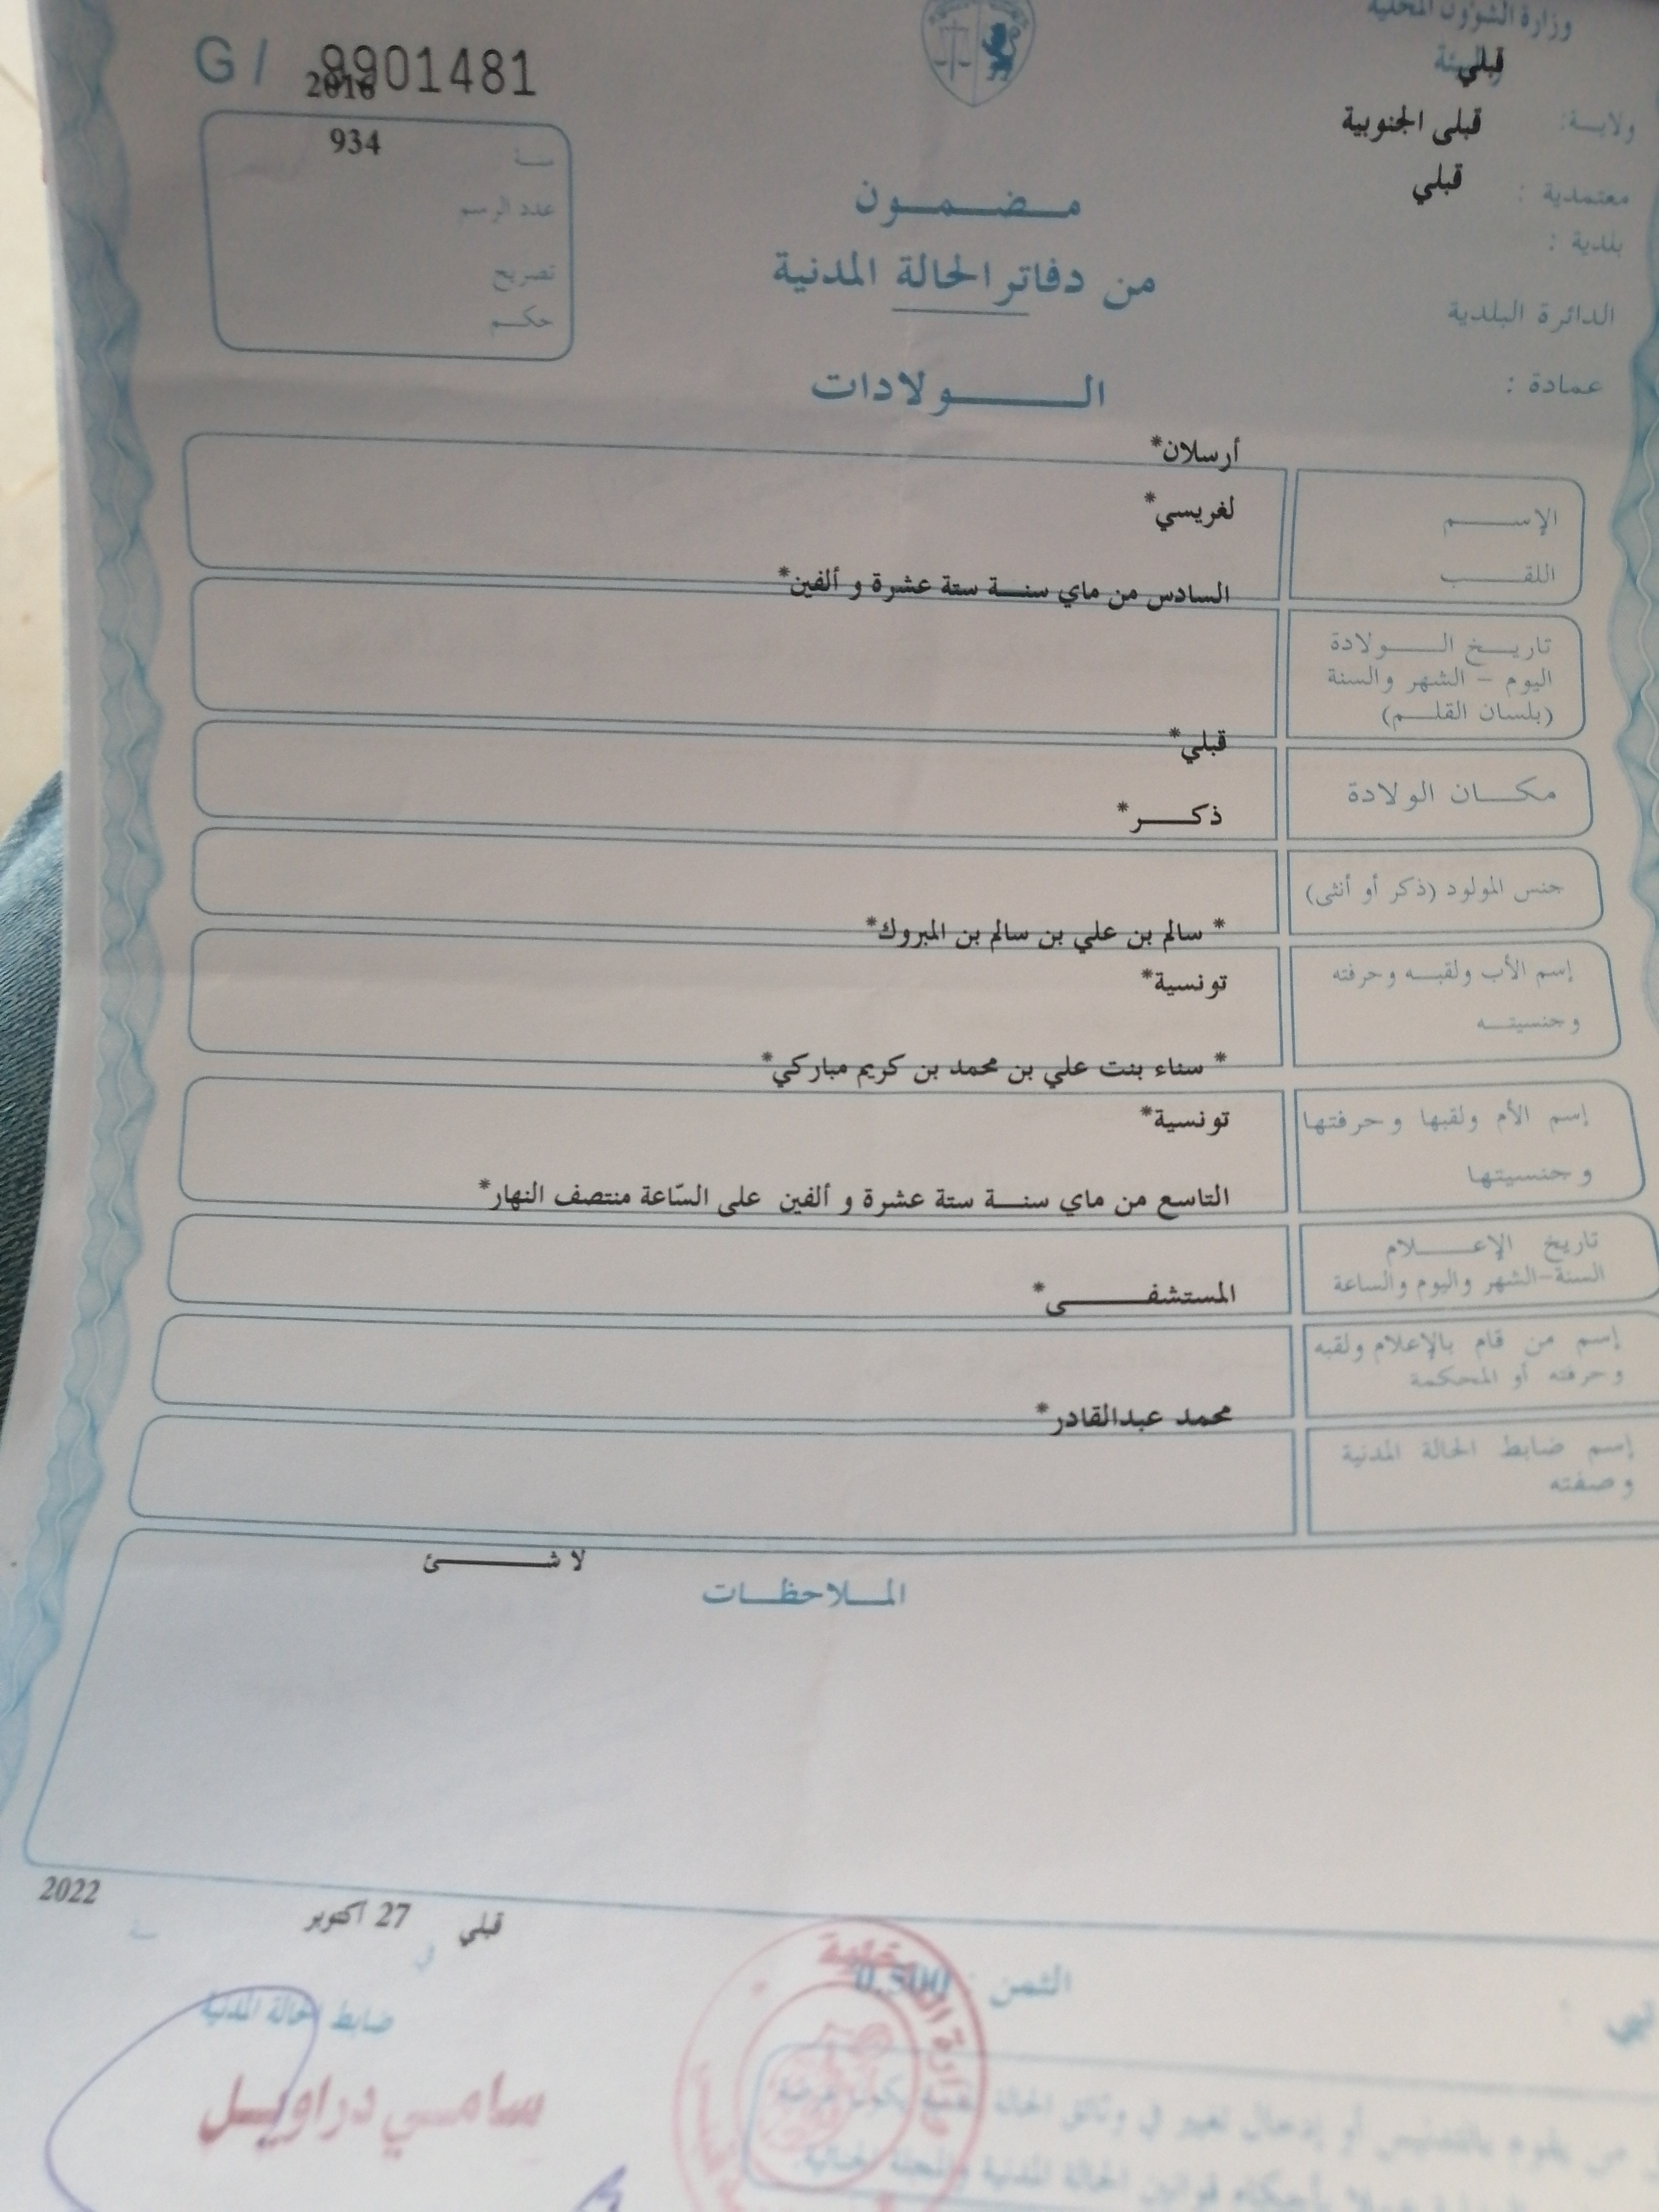 وزارة الشؤون المحلية
والبيئة
قبلي
ولاية:
قبلى الجنوبية
معتمدية :
قبلي
بلدية :
الدائرة البلدية
عمادة :
G/ 9901481
2016
سنة
934
عدد الرسم
تصريح
حكم
مضمون
من دفاتر الحالة المدنية
الولادات
أرسلان*
الإسم
لغريسي*
اللقب
السادس من ماي سنة ستة عشرة و ألفين*
تاريخ الولادة
اليوم - الشهر والسنة
(بلسان القلم)
قبلي*
مكان الولادة
ذكر*
جنس المولود (ذكر أو أنثى)
* سالم بن علي بن سالم بن المبروك*
إسم الأب ولقبه وحرفته
تونسية*
وجنسيته
* سناء بنت علي بن محمد بن كريم مباركي*
إسم الأم ولقبها وحرفتها
تونسية*
وجنسيتها
التاسع من ماي سنة ستة عشرة و ألفين على السّاعة منتصف النهار*
تاريخ الإعلام
السنة-الشهر واليوم والساعة
المستشفى*
إسم من قام بالإعلام ولقبه
وحرفته أو المحكمة
محمد عبدالقادر*
إسم ضابط الحالة المدنية
وصفته
لا شئ
الملاحظات
قبلي في 27 اكتوبر سنة 2022
ضابط الحالة المدنية
سامي دراويل
الثمن : 0.500
من يقوم بالتدليس أو إدخال تغيير في وثائق الحالة المدنية يكون عرضة
بأحكام قوانين الحالة المدنية والمجلة الجنائية.